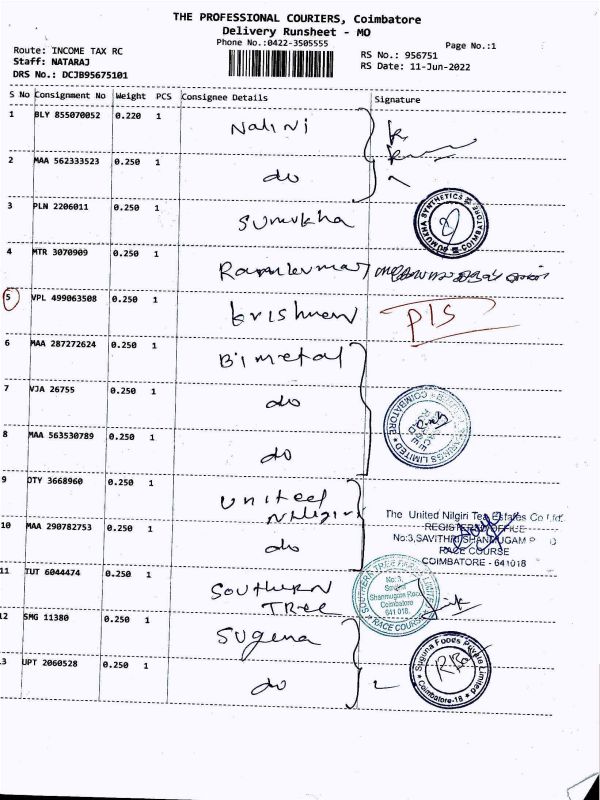 THE PROFESSIONAL COURIERS, Coimbatore
Delivery Runsheet - MO
Phone No.:0422-3505555
Page No.:1
Route: INCOME TAX RC
Staff: NATARAJ
DRS No.: DCJB95675101
RS No.: 956751
RS Date: 11-Jun-2022
S No Consignment No Weight PCS Consignee Details Signature
1 BLY 855070052 0.220 1 Nalini
2 MAA 562333523 0.250 1 do
3 PLN 2206011 0.250 1 Sumukha
SUMUKHA SYNTHETICS COIMBATORE
4 MTR 3070909 0.250 1 Ramkumar
5 VPL 499063508 0.250 1 krishnan PIS
6 MAA 287272624 0.250 1 Bimetal
7 VJA 26755 0.250 1 do
8 MAA 563530789 0.250 1 do
BEARINGS LIMITED COIMBATORE
9 OTY 3668960 0.250 1 United Nilgiri
The United Nilgiri Tea Estates Co Ltd.
REGISTERED OFFICE
10 MAA 290782753 0.250 1 do
No:3,SAVITHRI SHANMUGAM
RACE COURSE
COIMBATORE - 641018
11 TUT 6044474 0.250 1 Southern Tree
SOUTHERN TREE FARMS LIMITED
No: 3,
Savithri
Shanmugam Road
Coimbatore
641 018.
RACE COURSE
12 SMG 11380 0.250 1 Suguna
13 UPT 2060528 0.250 1 do
Suguna Foods Private Limited
Coimbatore-18